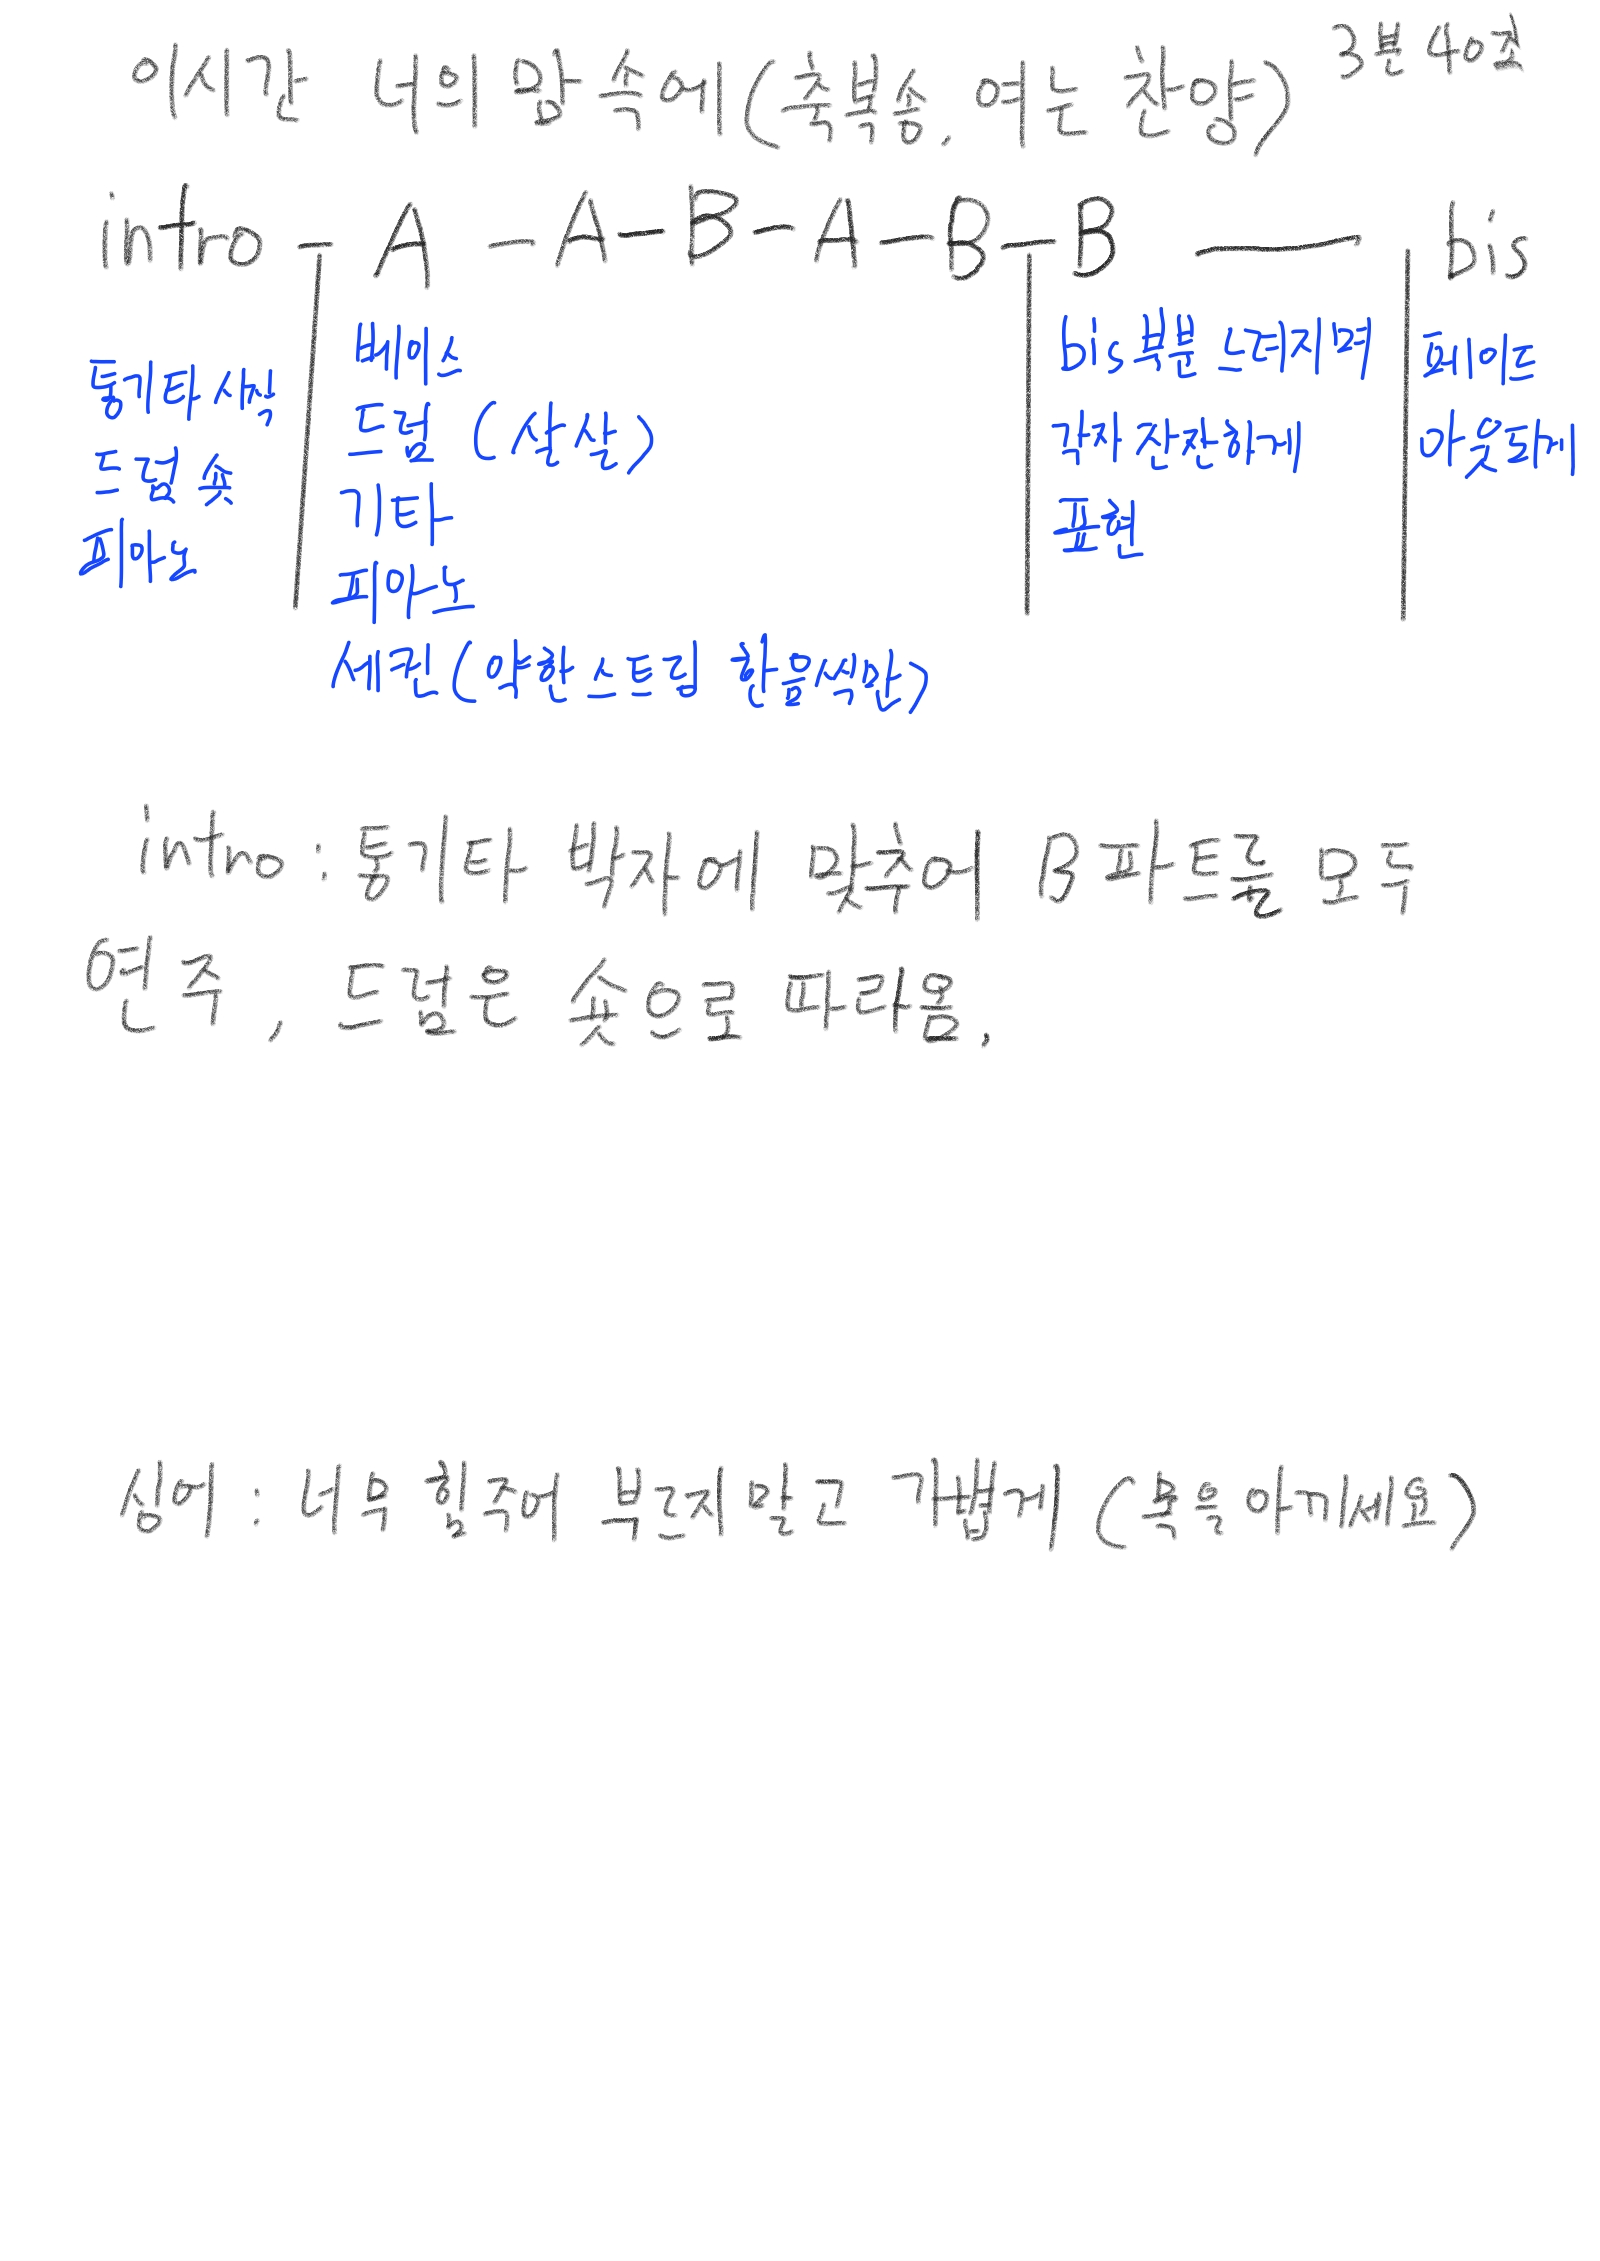 이시간 너의 맘 속에(축복송, 여는 찬양) 3분 40초
intro - A - A - B - A - B - B — bis
통기타 시작
드럼 숏
피아노
베이스
드럼 (살살)
기타
피아노
세컨(약한 스트링 한음씩만)
bis 부분 느려지며
각자 잔잔하게
표현
페이드
아웃되게
intro : 통기타 박자에 맞추어 B 파트를 모두
연주, 드럼은 숏으로 따라옴.
싱어 : 너무 힘주어 부르지 말고 가볍게 (목을 아끼세요)